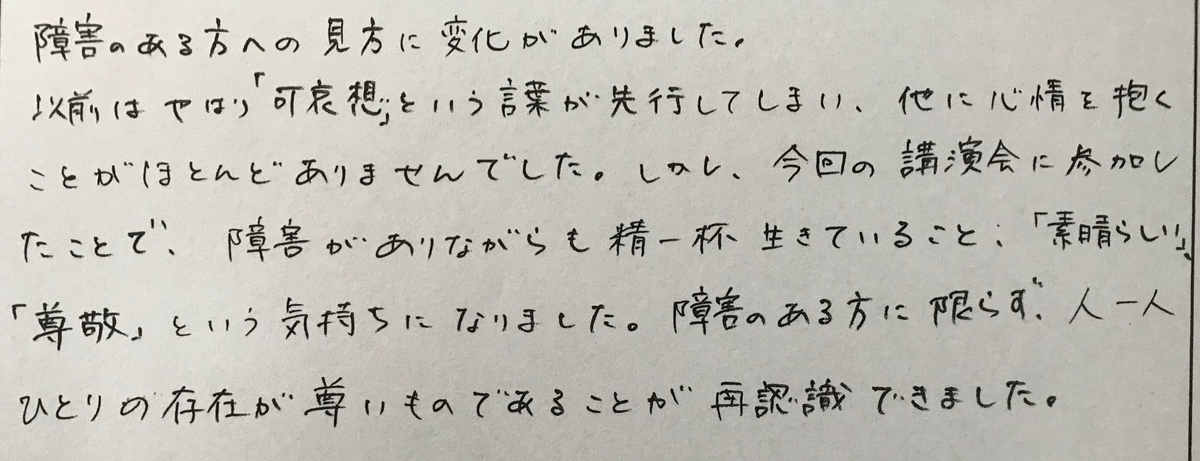 障害のある方への見方に変化がありました。
以前はやはり「可哀想」という言葉が先行してしまい、他に心情を抱く
ことがほとんどありませんでした。しかし、今回の講演会に参加し
たことで、障害がありながらも精一杯生きていること、「素晴らしい」、
「尊敬」という気持ちになりました。障害のある方に限らず、人一人
ひとりの存在が尊いものであることが再認識できました。